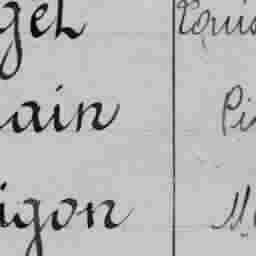 gel Loui
ain Pi
igon M